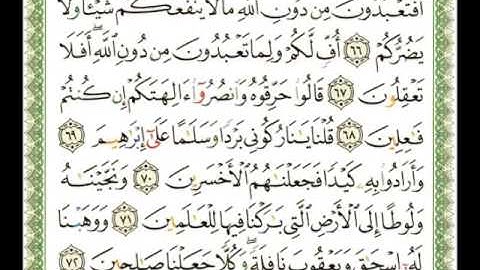 أَفَتَعْبُدُونَ مِن دُونِ ٱللَّهِ مَا لَا يَنفَعُكُمْ شَيْـًٔا وَلَا
يَضُرُّكُمْ ٦٦ أُفٍّ لَّكُمْ وَلِمَا تَعْبُدُونَ مِن دُونِ ٱللَّهِ ۖ أَفَلَا
تَعْقِلُونَ ٦٧ قَالُوا۟ حَرِّقُوهُ وَٱنصُرُوٓا۟ ءَالِهَتَكُمْ إِن كُنتُمْ
فَـٰعِلِينَ ٦٨ قُلْنَا يَـٰنَارُ كُونِى بَرْدًا وَسَلَـٰمًا عَلَىٰٓ إِبْرَٰهِيمَ ٦٩
وَأَرَادُوا۟ بِهِۦ كَيْدًا فَجَعَلْنَـٰهُمُ ٱلْأَخْسَرِينَ ٧٠ وَنَجَّيْنَـٰهُ
وَلُوطًا إِلَى ٱلْأَرْضِ ٱلَّتِى بَـٰرَكْنَا فِيهَا لِلْعَـٰلَمِينَ ٧١ وَوَهَبْنَا
لَهُۥٓ إِسْحَـٰقَ وَيَعْقُوبَ نَافِلَةً ۖ وَكُلًّا جَعَلْنَا صَـٰلِحِينَ ٧٢